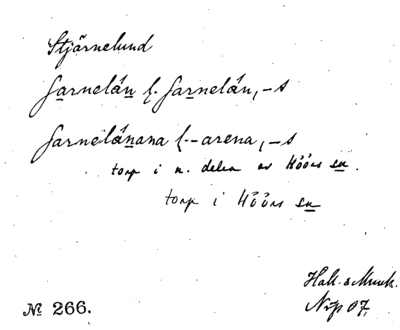 Stjärnelund
Jarnelán l. Jarnelán, -s
Jarnelánana l. -arena, -s
torp i n. delen av Höörs sn.
torp i Höörs sn
Nip 07.
№ 266.